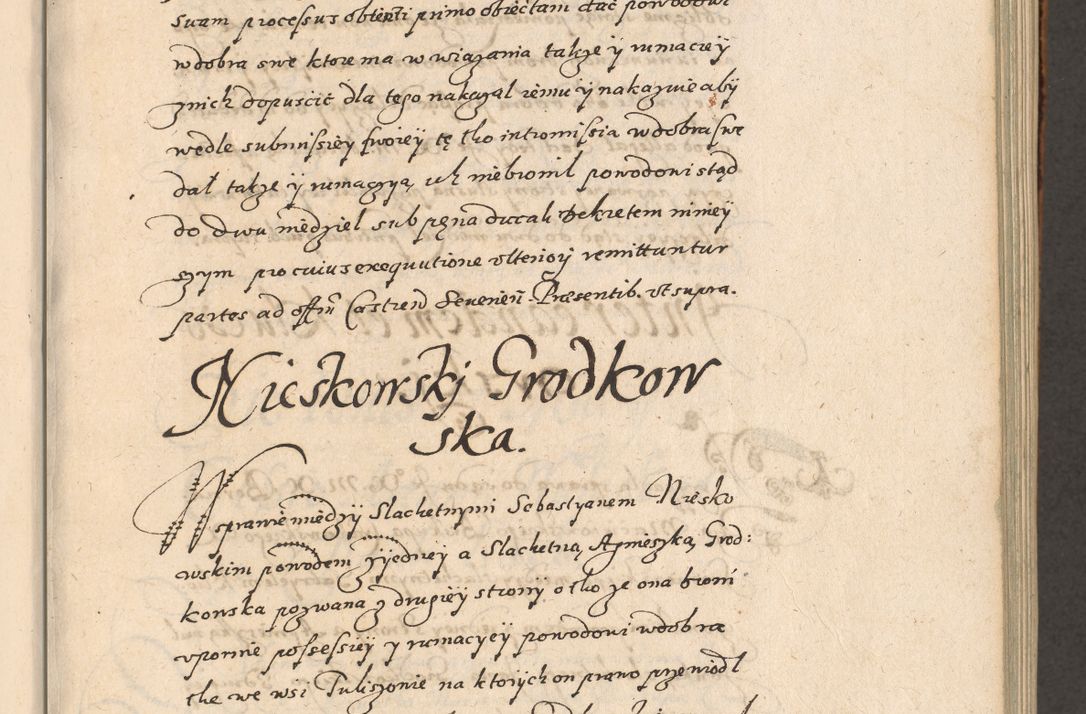 suam processus obienti primo obiectam dać powodowi
w dobra swe ktore ma w wiązania takze ÿ rumacieÿ
znich dopuścić dla tego nakazał iemu ÿ nakazuie abÿ
wedle submissieÿ swoieÿ tę tho intromissia w dobra swe
dał takze ÿ rumaczyą, ich niebronił powodowi stąd
do dwu niedziel sub pęna ducali dekretem niniej
szym pro cuius exequutione vlteriorj remittuntur
partes ad offm Castren Seuerien. Præsentib. vt supra.
Nieskowskj Grodkow
ska.
W sprawie międzÿ Slachetnymi Sebastyanem Niesko
wskim powodem zÿednej a Slachetną Agnieszką Grod:
kowska pozwana z drugieÿ stronÿ o tho ze ona broni
vpornie possessieÿ y rumacyeÿ powodowi w dobrze
the we wsi Tuliszowie na ktorÿch on prawo przewiodł